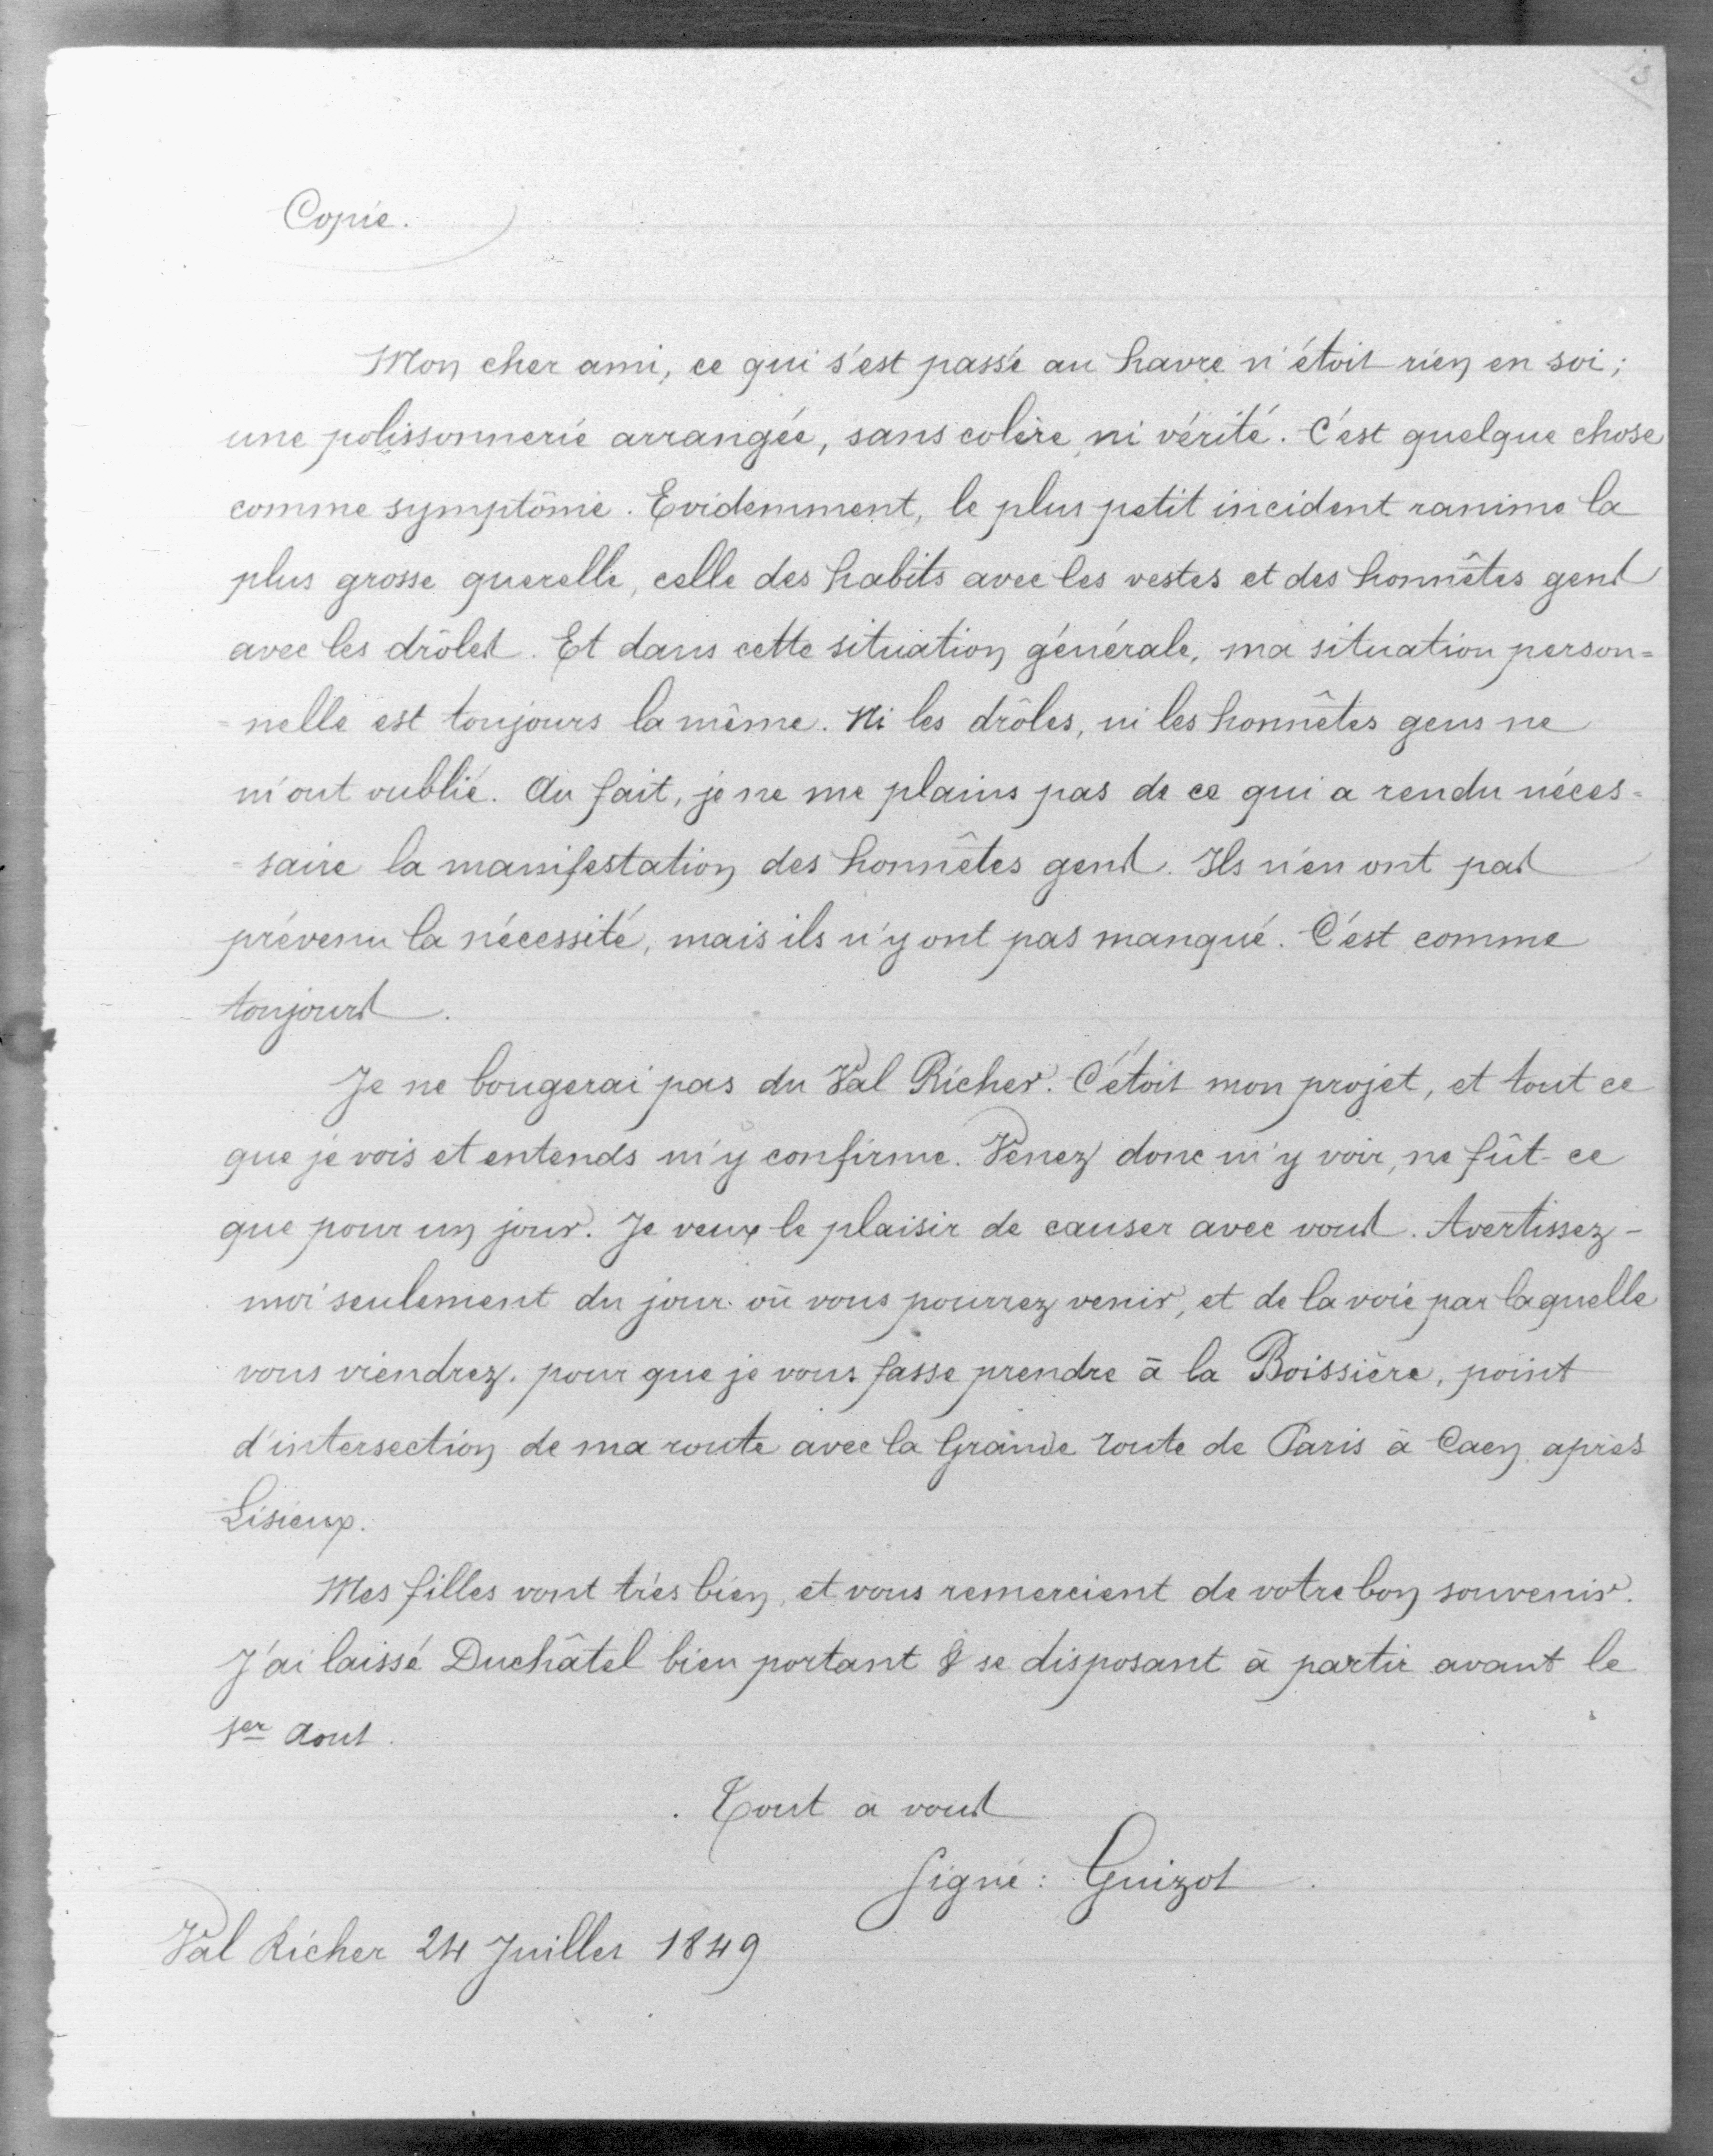 Copie.
Mon cher ami, ce qui s'est passé au havre n'étoit rien en soi;
une polissonnerie arrangée, sans colère, ni vérité. C'est quelque chose
comme symptôme. Evidemment, le plus petit incident ranime la
plus grosse querelle, celle des habits avec les vestes et des honnêtes gens
avec les drôles. Et dans cette situation générale, ma situation person=
=nelle est toujours la même. Ni les drôles, ni les honnêtes gens ne
m'ont oublié. Au fait, je ne me plains pas de ce qui a rendu néces=
=saire la manifestation des honnêtes gens. Ils n'en ont pas
prévenu la nécessité, mais ils n'y ont pas manqué. C'est comme
toujours.
Je ne bougerai pas du Val Richer. C'étoit mon projet, et tout ce
que je vois et entends m'y confirme. Venez donc m'y voir, ne fût-ce
que pour un jour. Je veux le plaisir de causer avec vous. Avertissez-
moi seulement du jour où vous pourrez venir, et de la voie par laquelle
vous viendrez. pour que je vous fasse prendre à la Boissière, point
d'intersection de ma route avec la Grande route de Paris à Caen, après
Lisieux.
Mes filles vont très bien, et vous remercient de votre bon souvenir.
J'ai laissé Duchâtel bien portant & se disposant à partir avant le
1er Aout.
Tout à vous
Signé: Guizot.
Val Richer 24 Juillet 1849